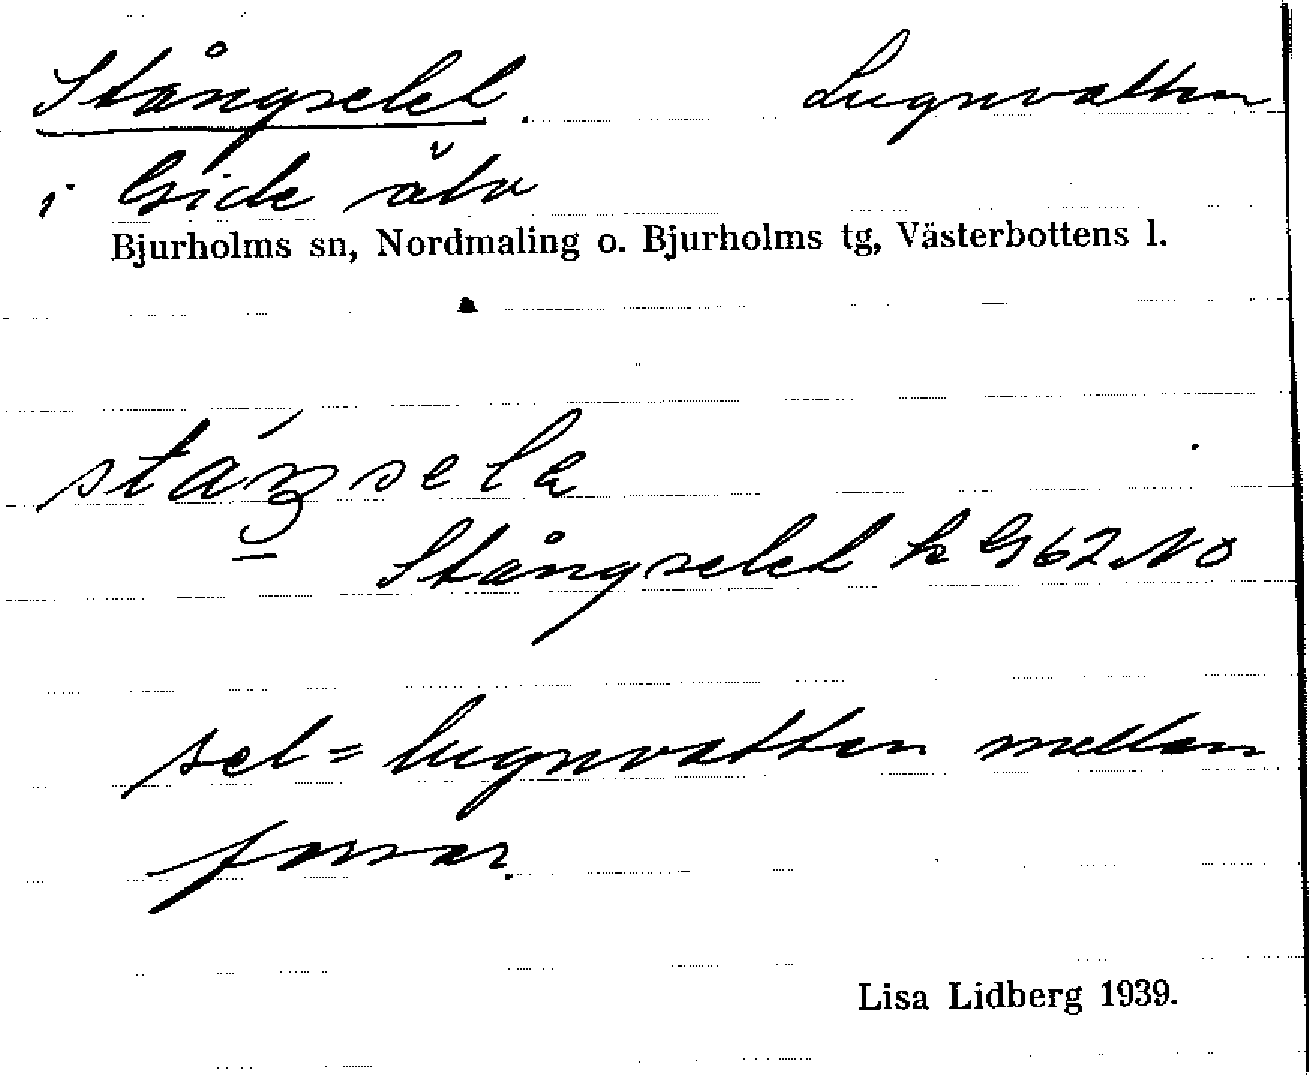 Stångselet. Lugnvatten
i Gide älv
Bjurholms sn, Nordmaling o. Bjurholms tg, Västerbottens l.
Stångselet k G62 NO
sel = lugnvatten mellan
forsar.
Lisa Lidberg 1939.